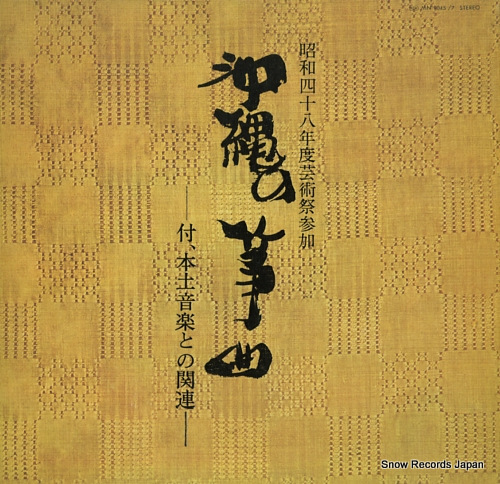 昭和四十八年度芸術祭参加
沖縄の箏曲
―付、本土音楽との関連―
STEREO
Snow Records Japan